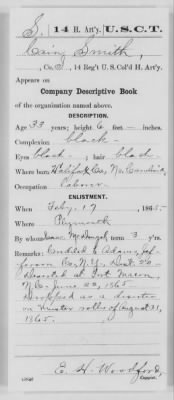 S. 14 H. Art'y. U.S.C.T.
Cairy Smith,
, Co. D, 14 Reg't U. S. Col'd H. Art'y.
Appears on
Company Descriptive Book
of the organization named above.
DESCRIPTION.
Age 33 years; height 6 feet — inches.
Complexion black
Eyes black; hair black
Where born Halifax Co., No. Carolina
Occupation Laborer
ENLISTMENT.
When Feby. 17, 1865.
Where Plymouth
By whom Isaac; term 3 y'rs.
Remarks: Credited to Adams, Jef-
ferson Co., N.Y., Dist. 20
Deserted at Fort Macon,
N.C. June 22, 1865
Dropped as a deserter
on Muster rolls of August 31,
1865.
E. H. Woodford,
Copyist.